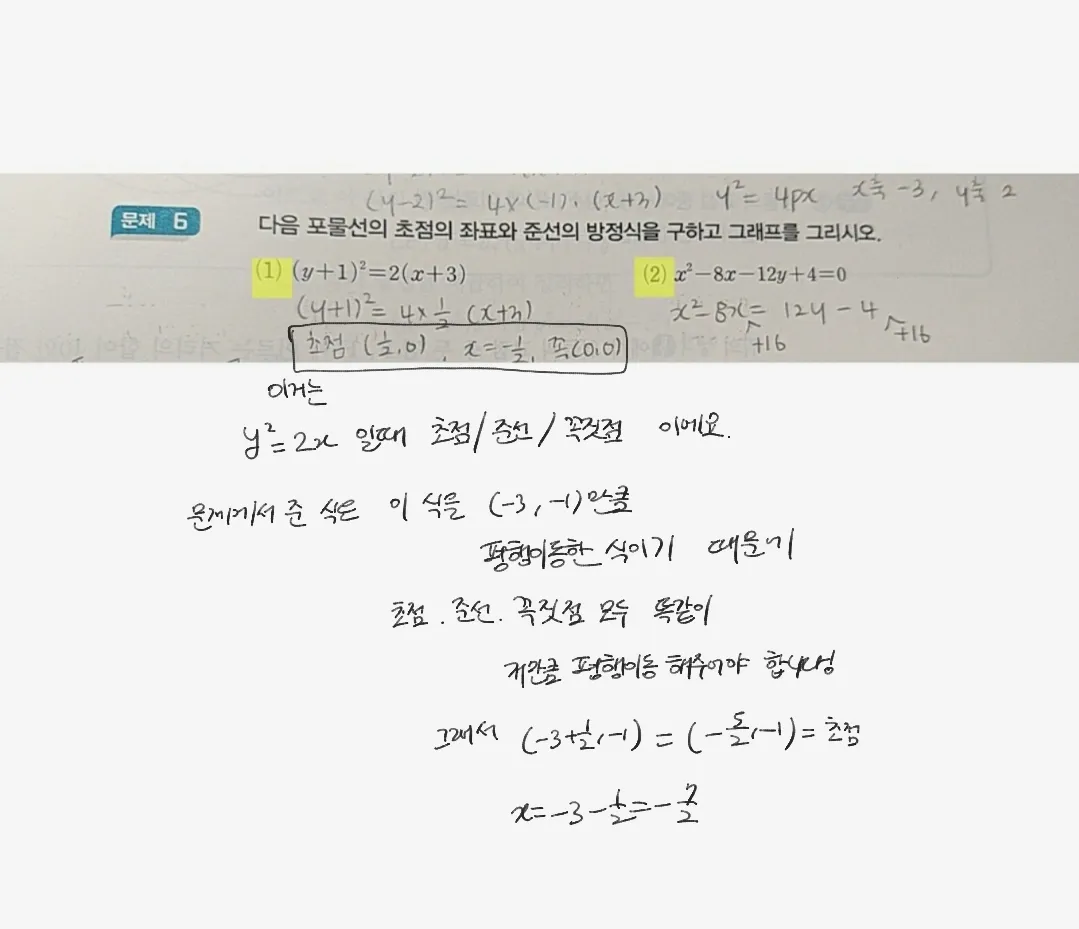 (y-2)² = 4×(-1)·(x+3) y² = 4px x축 -3, y축 2
문제 6 다음 포물선의 초점의 좌표와 준선의 방정식을 구하고 그래프를 그리시오.
(1) (y+1)²=2(x+3)
(y+1)² = 4×½ (x+3)
초점 (½,0), x=-½, 꼭(0,0)
(2) x²-8x-12y+4=0
x²-8x= 12y-4
+16 +16
이거는
y²=2x 일때 초점/준선/꼭짓점 이에요.
문제에서 준 식은 이 식을 (-3, -1)만큼
평행이동한 식이기 때문에
초점. 준선. 꼭짓점 모두 똑같이
저만큼 평행이동 해주어야 합니당
그래서 (-3+½,-1) = (-5/2,-1) = 초점
x=-3-½=-7/2